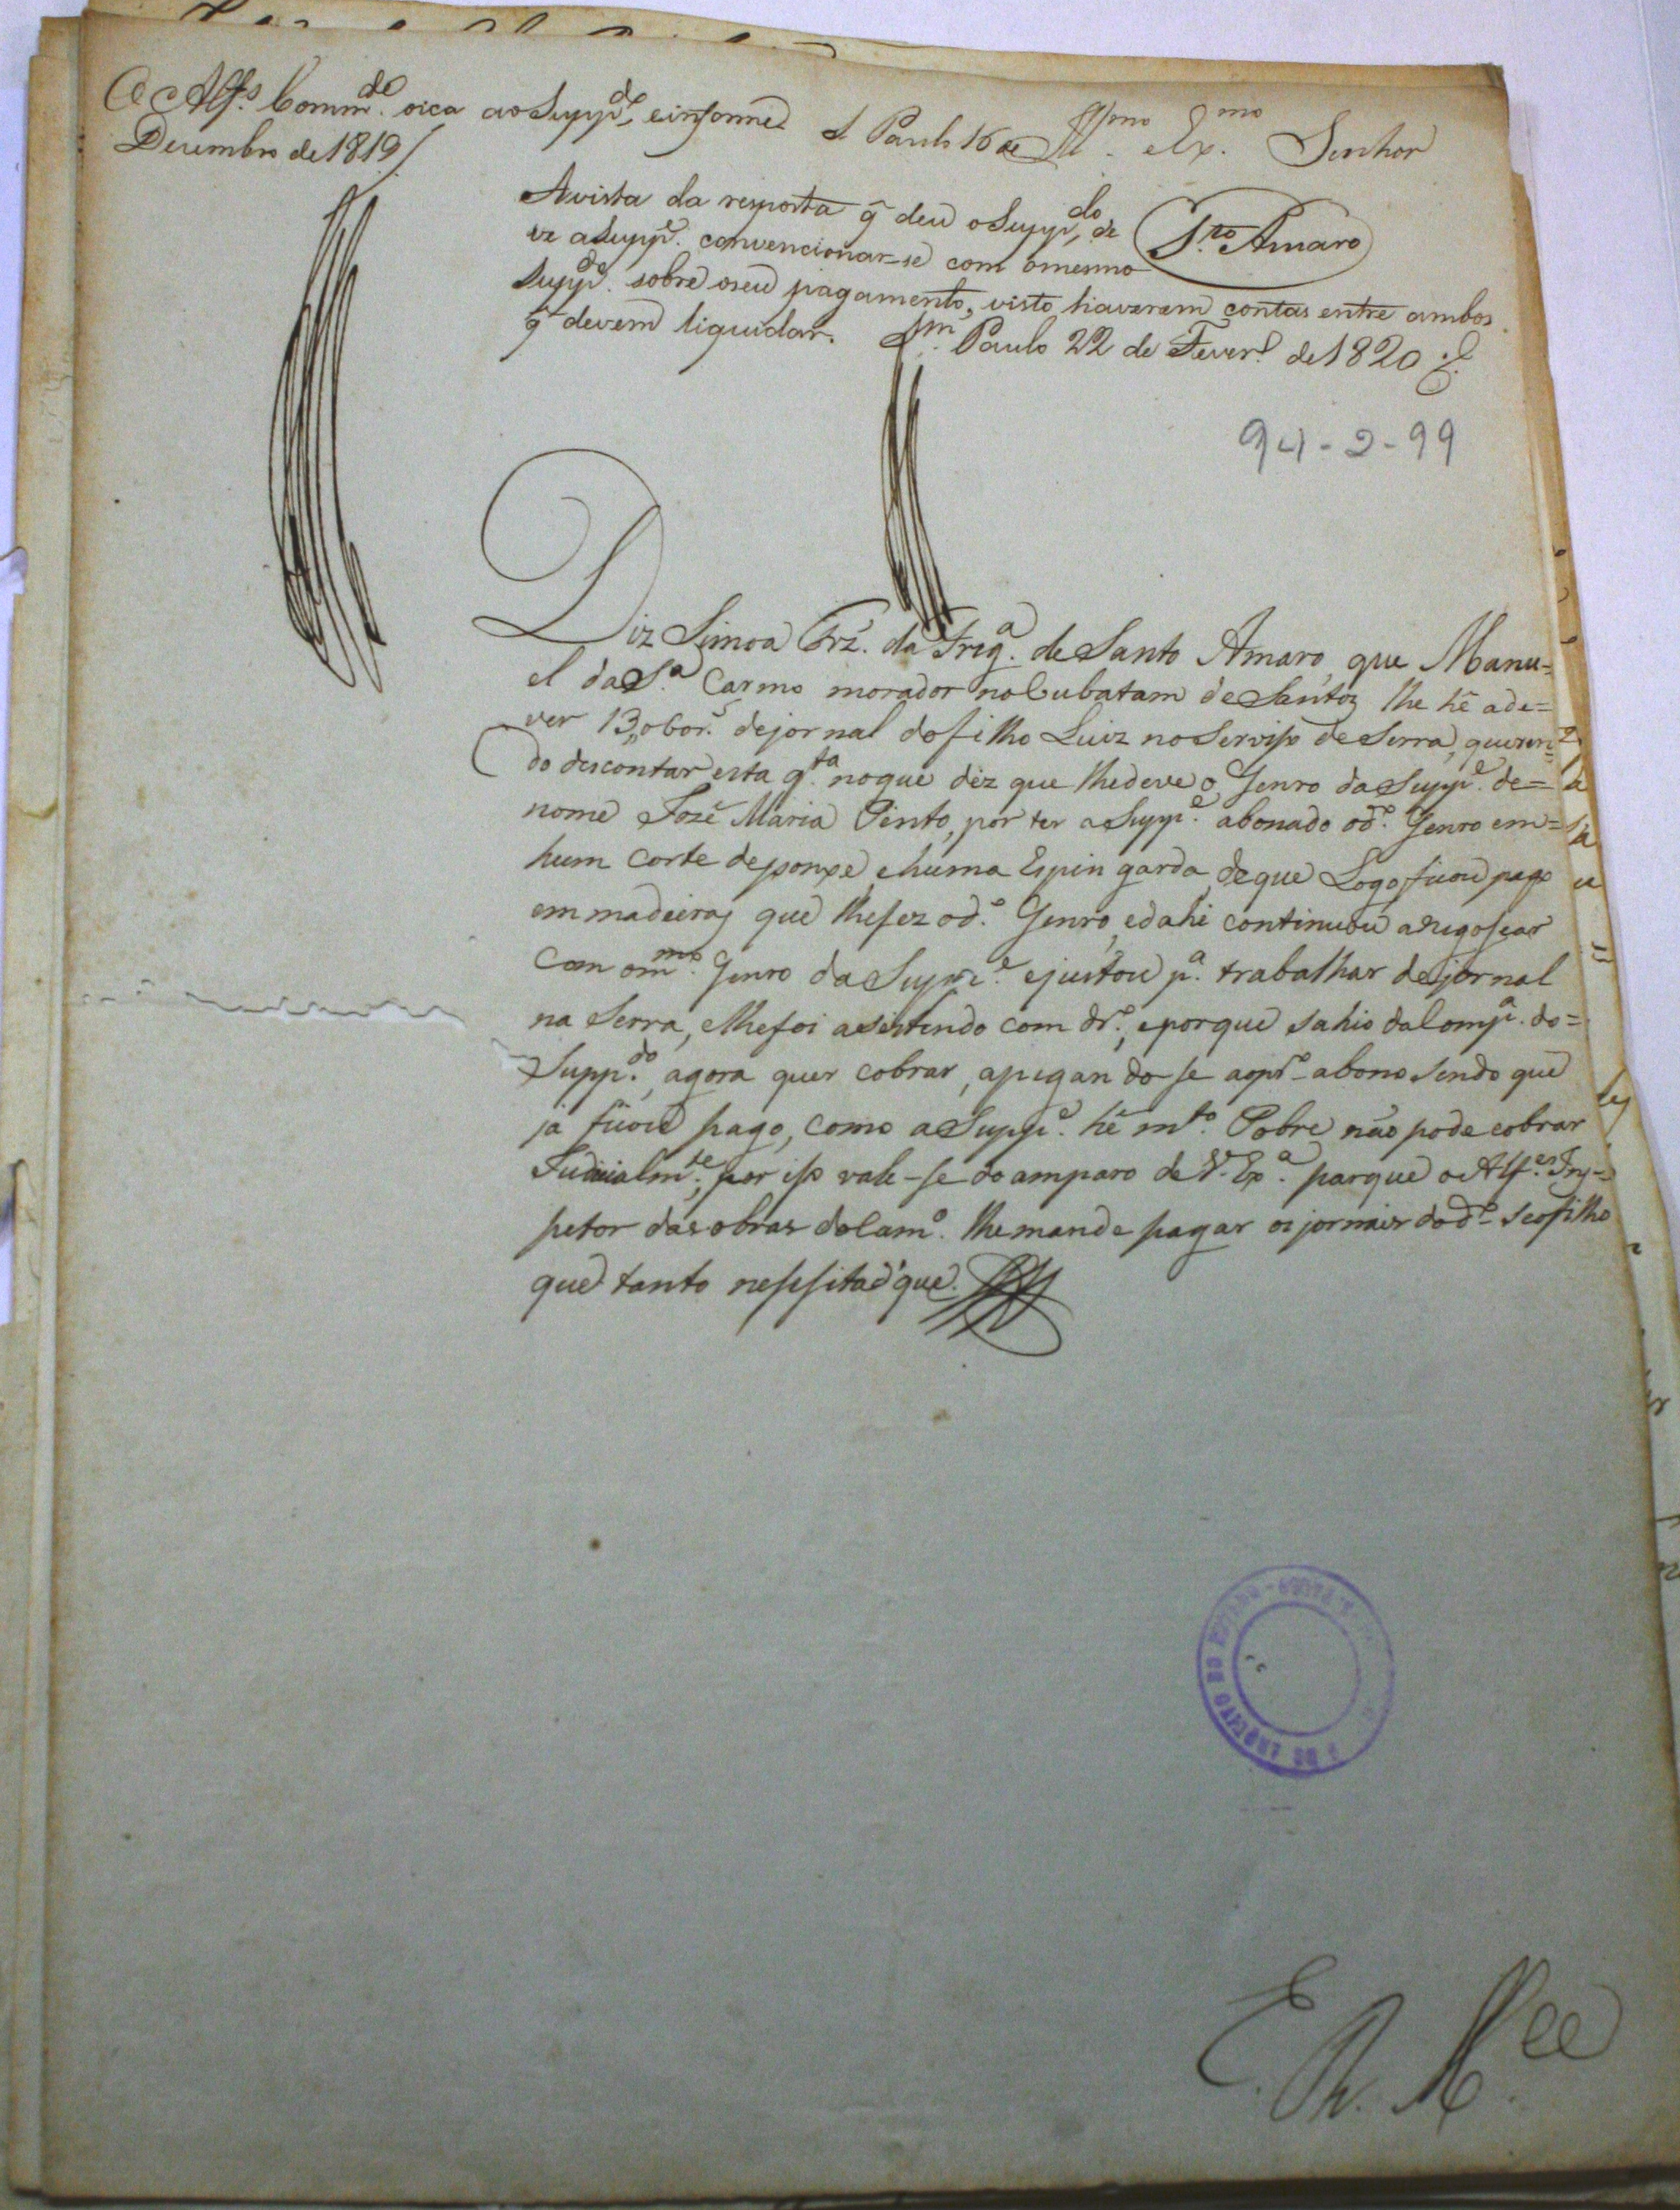 O Alf.s Comm.de oiça ao Supp.do, e informe S Paulo 16 de
Dezembro de 1819
Ill.mo e Ex.mo Senhor
S.to Amaro
A vista da resposta q̃ deu o Supp.do, de
ve a Supp.e convencionar-se com o mesmo
Supp.do sobre o seu pagamento, visto haverem contas entre ambos
q̃ devem liquidar. S.m Paulo 22 de Fever.o de 1820
94-2-99
Diz Simoa Frz. da Freg.a de Santo Amaro, que Manu=
el da S.a Carmo morador no Cubatam de Santos lhe hé a de=
ver 13,,060 r.s de jornal do filho Luiz no Serviso de Serra, queren=
do descontar esta q.ta no que diz que lhe deve o Genro da Supp.e de=
nome José Maria Pinto, por ter a Supp.e abonado o d.o Genro em=
hum corte de ponxe, e huma Espingarda, de que Logo ficou pago
em madeiras que lhe fez o d.o Genro, e dahi continuou a negosear
Com o m.mo Genro da Supp.e e justou p.a trabalhar de jornal
na Serra, e lhe foi asistindo com dr.o, e porque sahio da Comp.a do=
Supp.do, agora quer cobrar, apegando se ao pr.o abono sendo que
já ficou pago, como a Supp.e hé m.to Pobre não pode cobrar
Judicialm.te, por iso vale-se do amparo de V. Ex.a para que o Alf.es Ins=
petor das obras do Cam.o lhe mande pagar os jornais do d.o seo filho
que tanto nessesita e que
E. R. M.ce